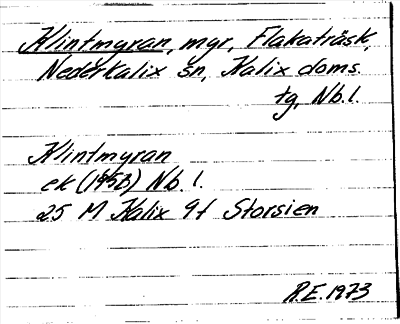 Klintmyran, myr, Flakaträsk,
Nederkalix sn, Kalix doms.
tg, Nb. l.
Klintmyran
ek (1958) Nb l.
25 M Kalix 9f Storsien
R.E. 1973